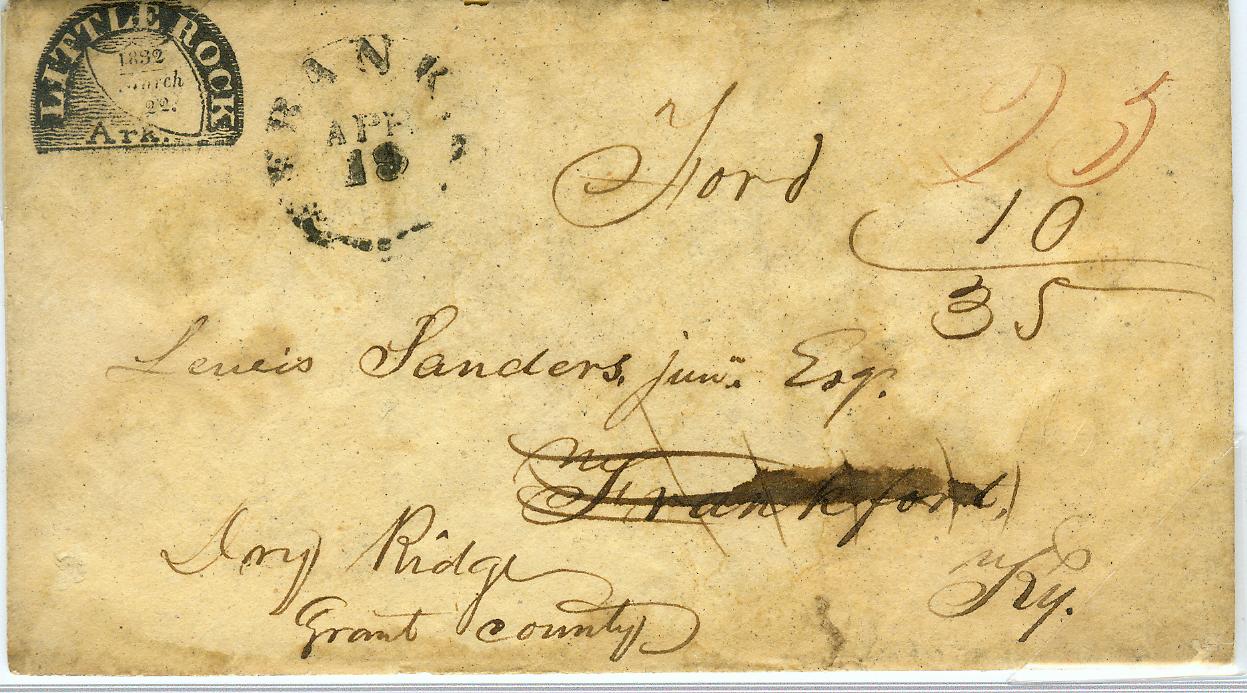 LITTLE ROCK
1832
March
22.
Ark.
FRANK
APR
19
Ford
25
10
35
Lewis Sanders, junr. Esq.
Frankfort,
Dry Ridge
Ky.
Grant county